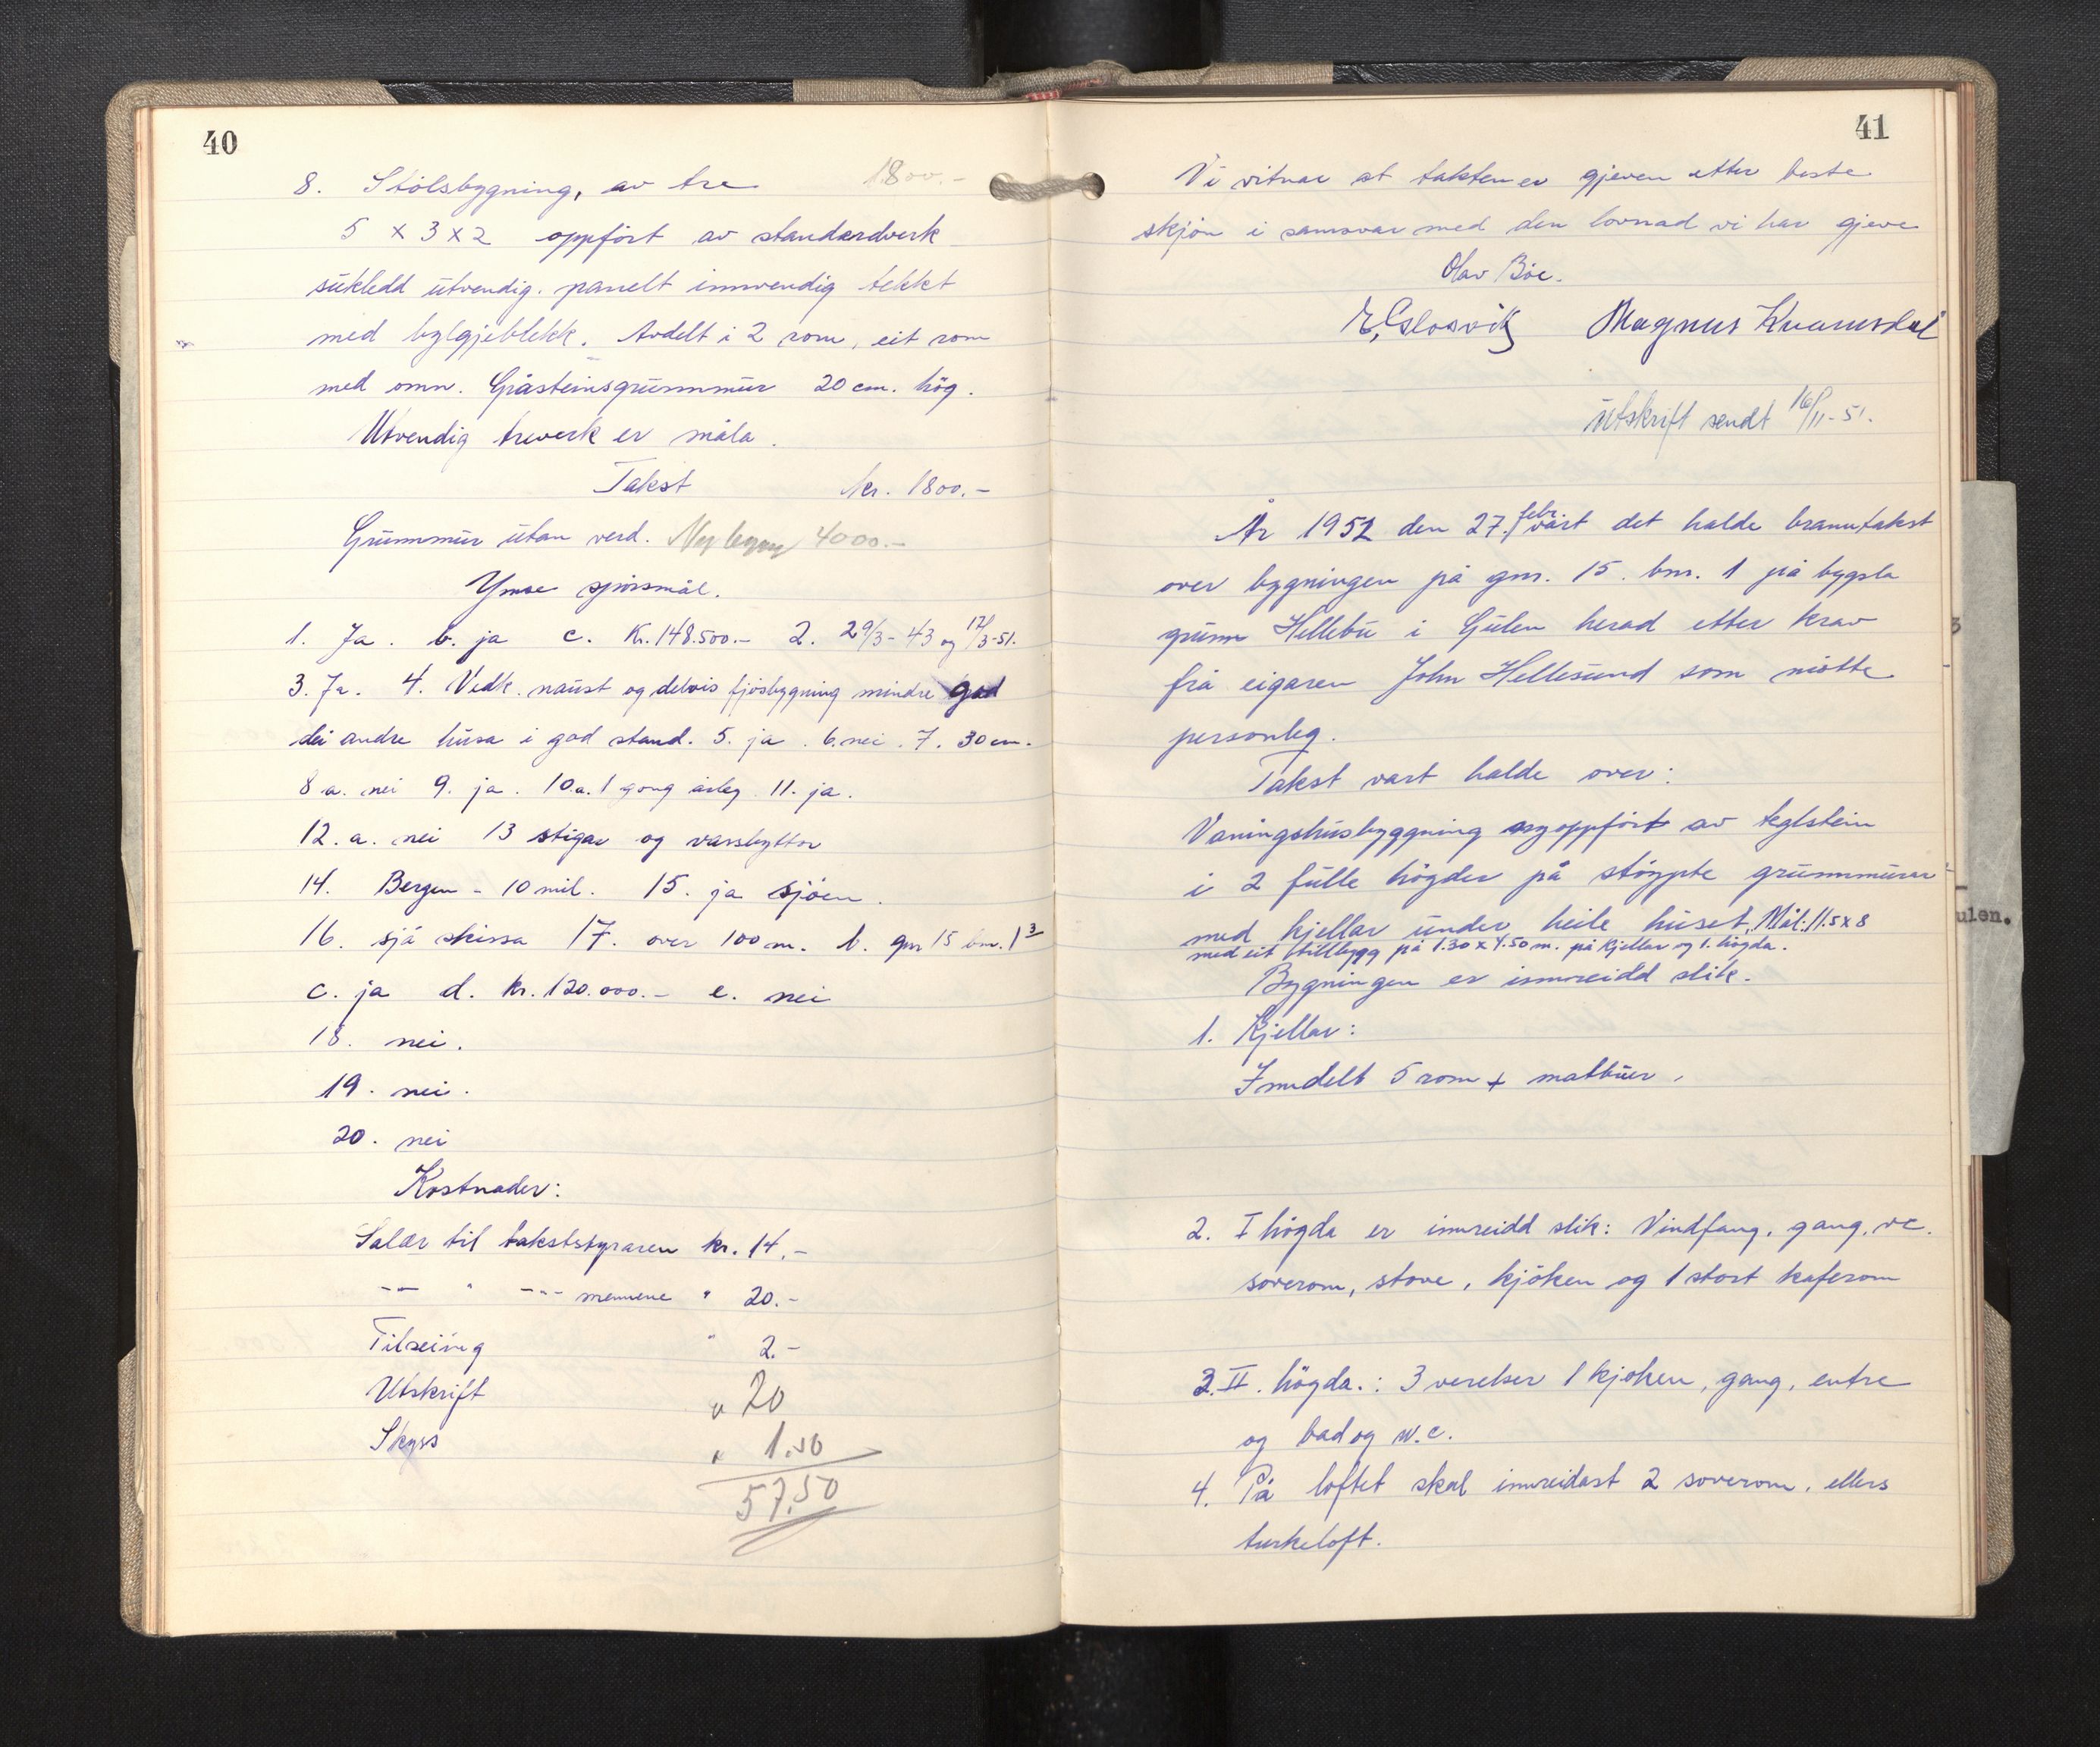 40
8. Stölsbygning, av tre 1800.-
5 x 3 x 2 oppført av standardverk
sukledd utvendig. panelt innvendig tekkt
med bylgjeblekk. Avdelt i 2 rom, eit rom
med omn. Gråsteinsgrunnmur 20 cm. hög.
Utvendig treverk er måla.
Takst kr. 1800.-
Grunnmur utan verd. Nybygg 4000.-
Ymse spörsmål.
1. Ja. b. ja c. Kr. 148.500.- 2. 29/3-43 og 17/3-51.
3. Ja. 4. Vedk. naust og delvis fjösbygning mindre god
dei andre husa i god stand. 5. ja. 6. nei. 7. 30 cm.
8 a. nei 9. ja. 10.a. 1 gong årleg. 11. ja.
12. a. nei 13 stigar og vassbyttor
14. Bergen - 10 mil. 15. ja sjöen.
16. sjå skissa 17. over 100 m. b. gnr 15 bnr. 1 3
c. ja d. kr. 120.000.- e. nei
18. nei.
19. nei.
20. nei
Kostnader:
Salær til takststyraren kr. 14.-
-"- " -"- mennene " 20.-
Tilseiing " 2.-
Utskrift " 20
Skyss " 1.50
57.50
41
Vi vitnar at taksten er gjeven etter beste
skjön i samsvar med den lovnad vi har gjeve
Olav Böe.
Magnus Kvamsdal
Utskrift sendt 16/11-51.
År 1952 den 27. febr. vart det halde branntakst
over bygningen på gnr. 15. bnr. 1 på bygsla
grunn Hellebu i Gulen herad etter krav
frå eigaren John Hellesund som mötte
personleg.
Takst vart halde over:
Våningshusbyggning nyoppfört av teglstein
i 2 fulle högder på stöypte grunnmurar
med kjellar under heile huset, Mål: 11.5 x 8
med eit tillbygg på 1.30 x 4.50 m. på kjellar og 1. högda.
Bygningen er innreidd slik.
1. Kjellar:
Inndelt 5 rom + matbuer.
2. I högda er innreidd slik: Vindfang, gang, vc.
soverom, stove, kjöken og 1 stort kaferom
3. II. högda.: 3 verelser 1 kjöken, gang, entre
og bad og w.c.
4. På loftet skal innreidast 2 soverom, ellers
turkeloft.
ulen.